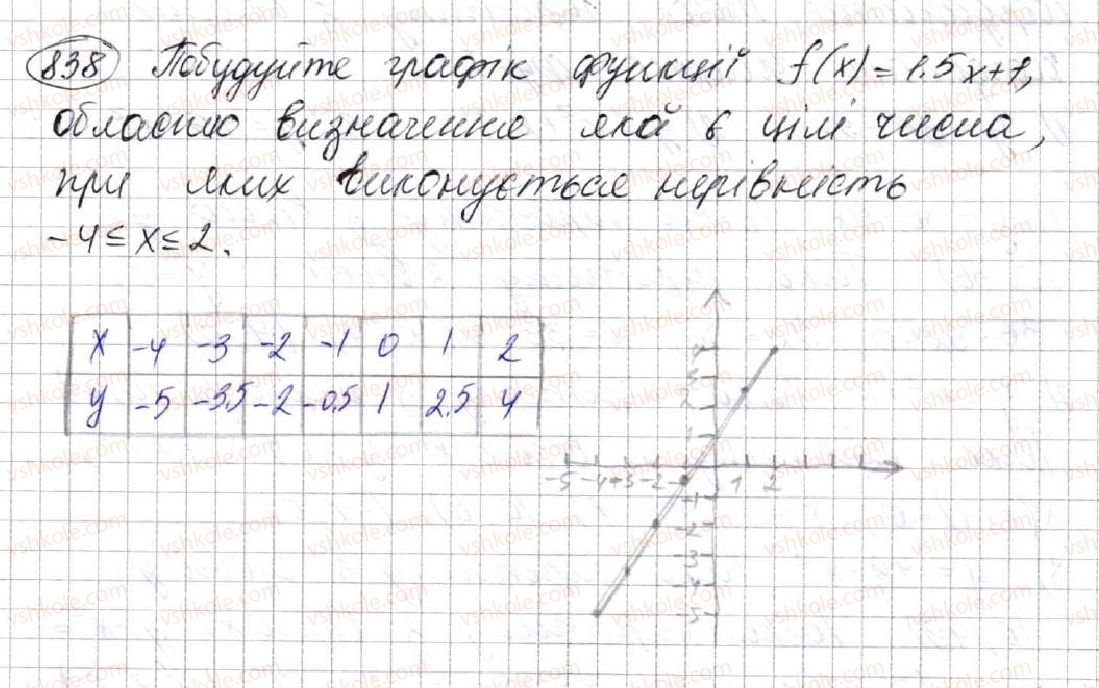 838 Побудуйте графік функції f(x)=1.5x+1,
областю визначення якої є цілі числа,
при яких виконується нерівність
-4≤x≤2.
x -4 -3 -2 -1 0 1 2
y -5 -3.5 -2 -0.5 1 2.5 4
4
3
2
1
-5 -4 -3 -2 1 2
-1
-2
-3
-4
-5
vshkole.com